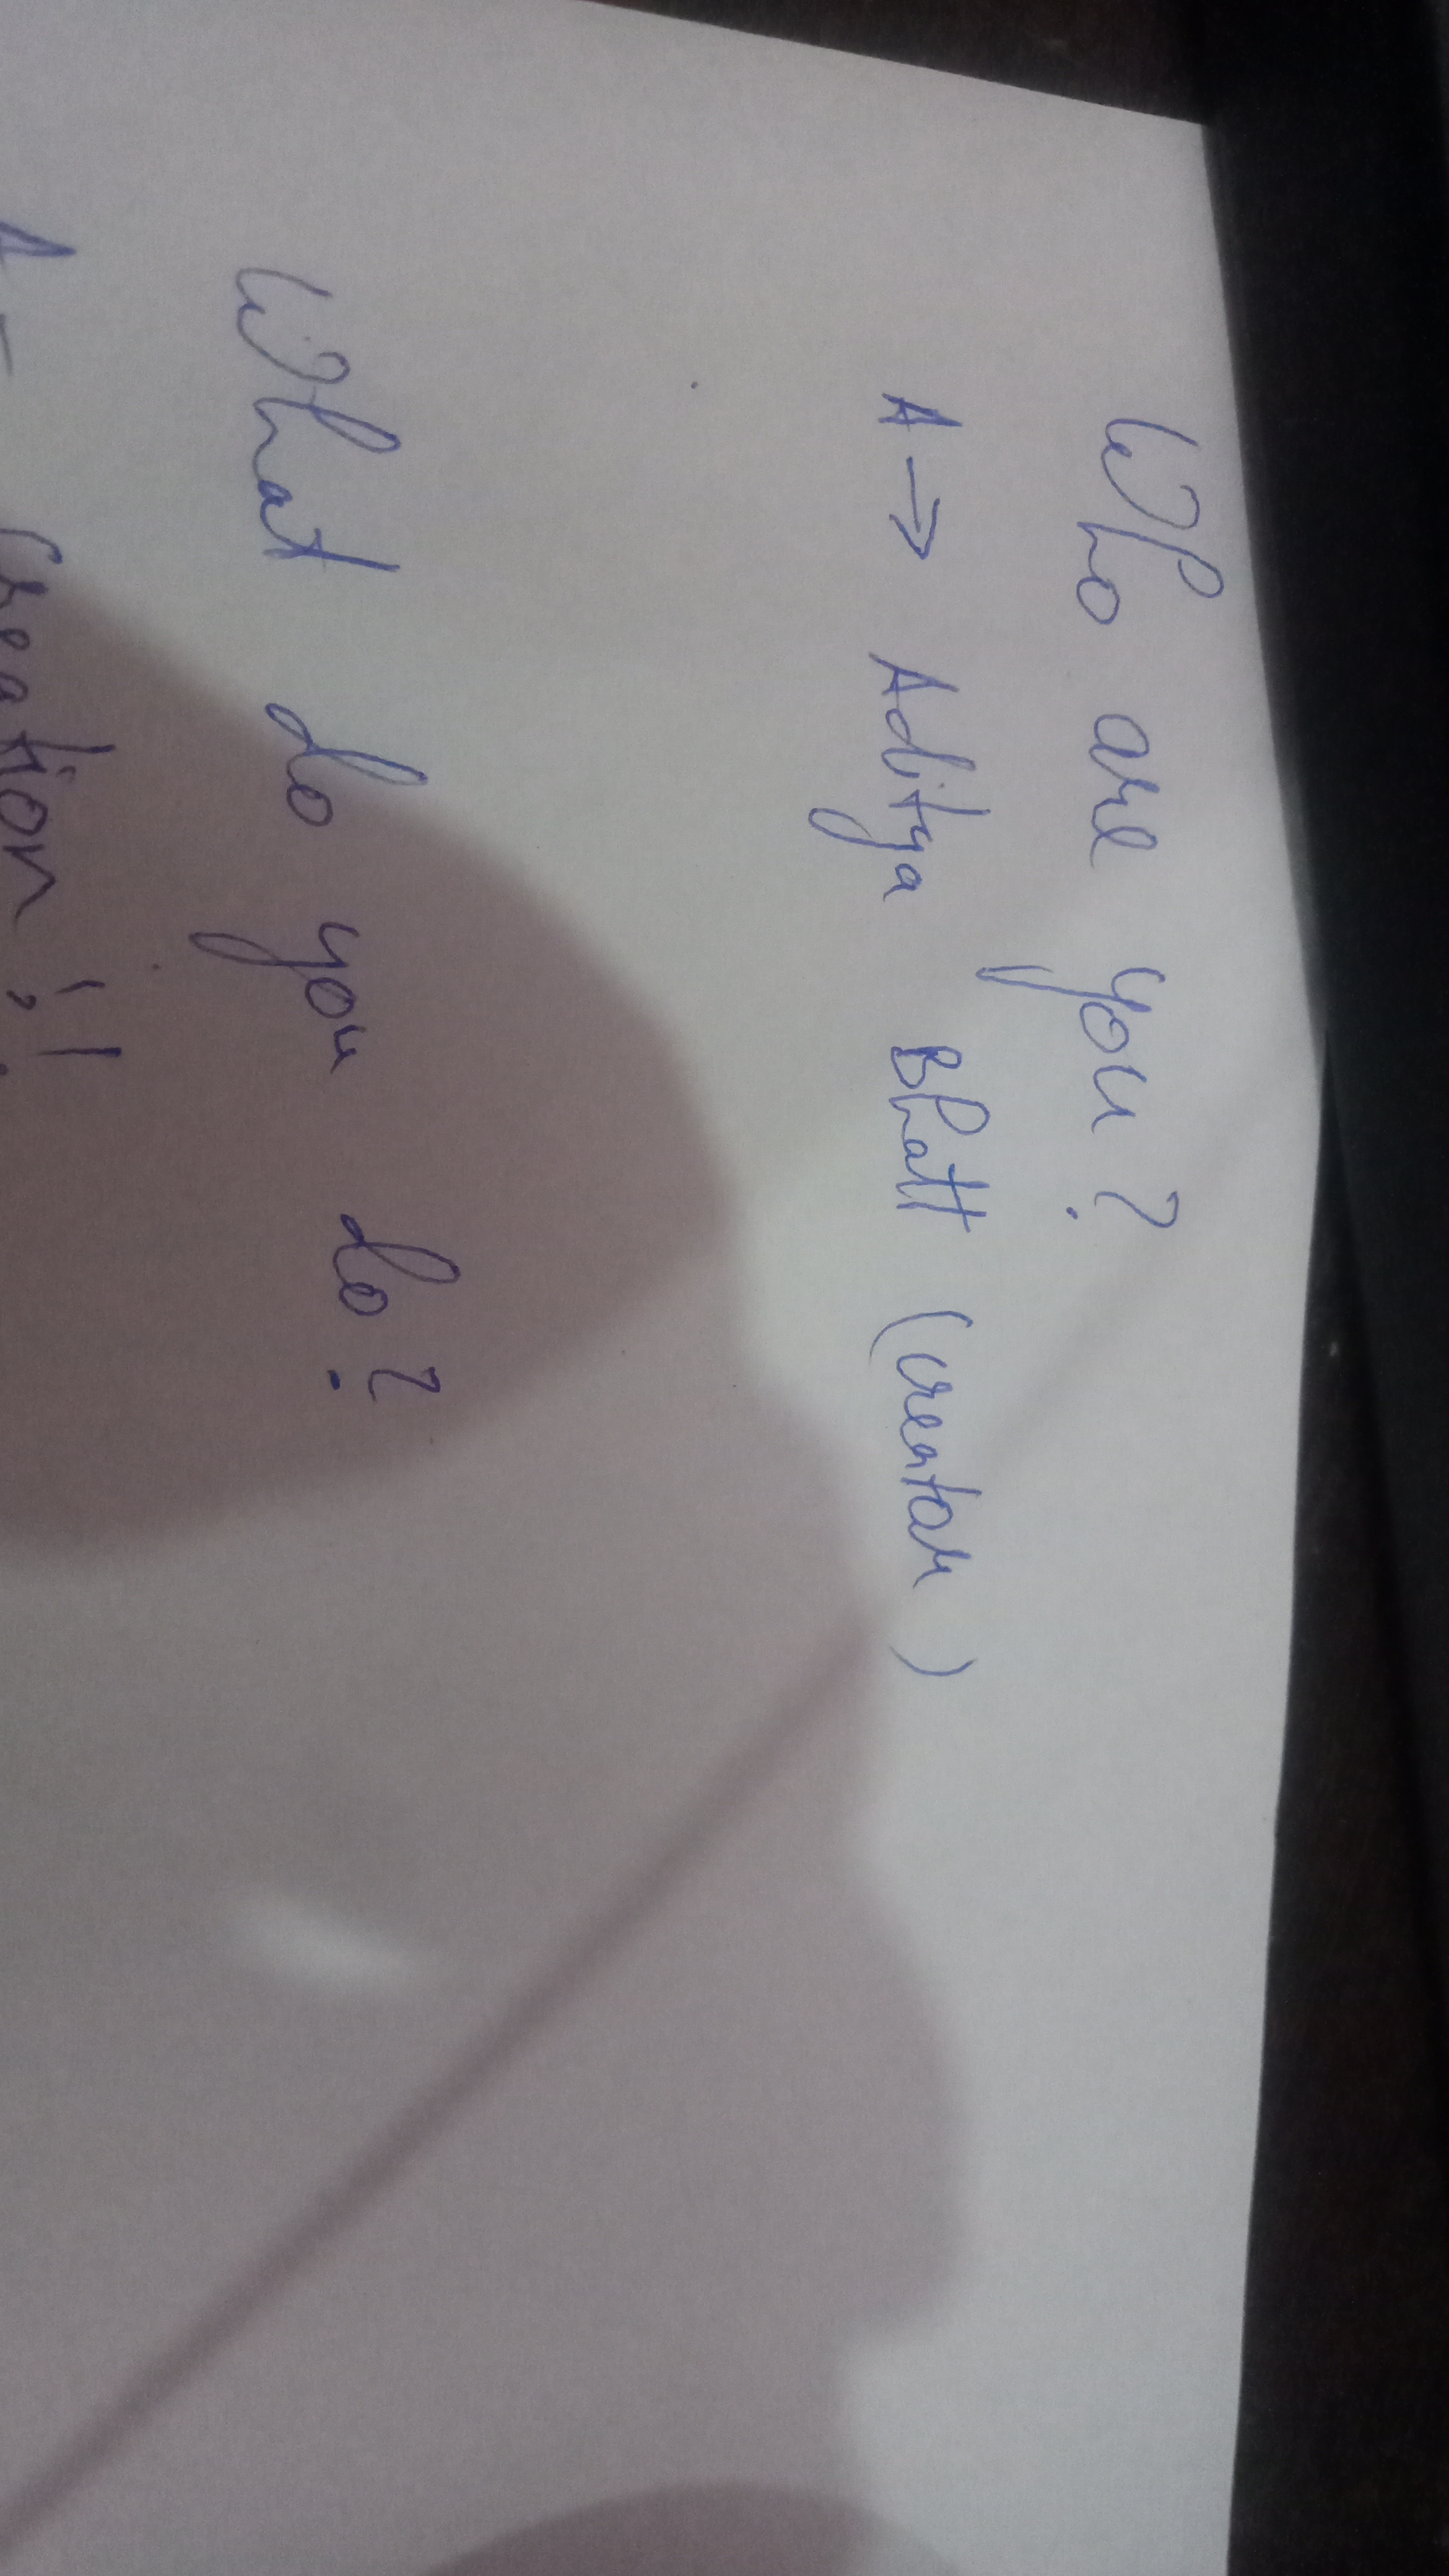 Who are you?
A → Aditya Bhatt (creator)
What do you do?
A - Creation !!